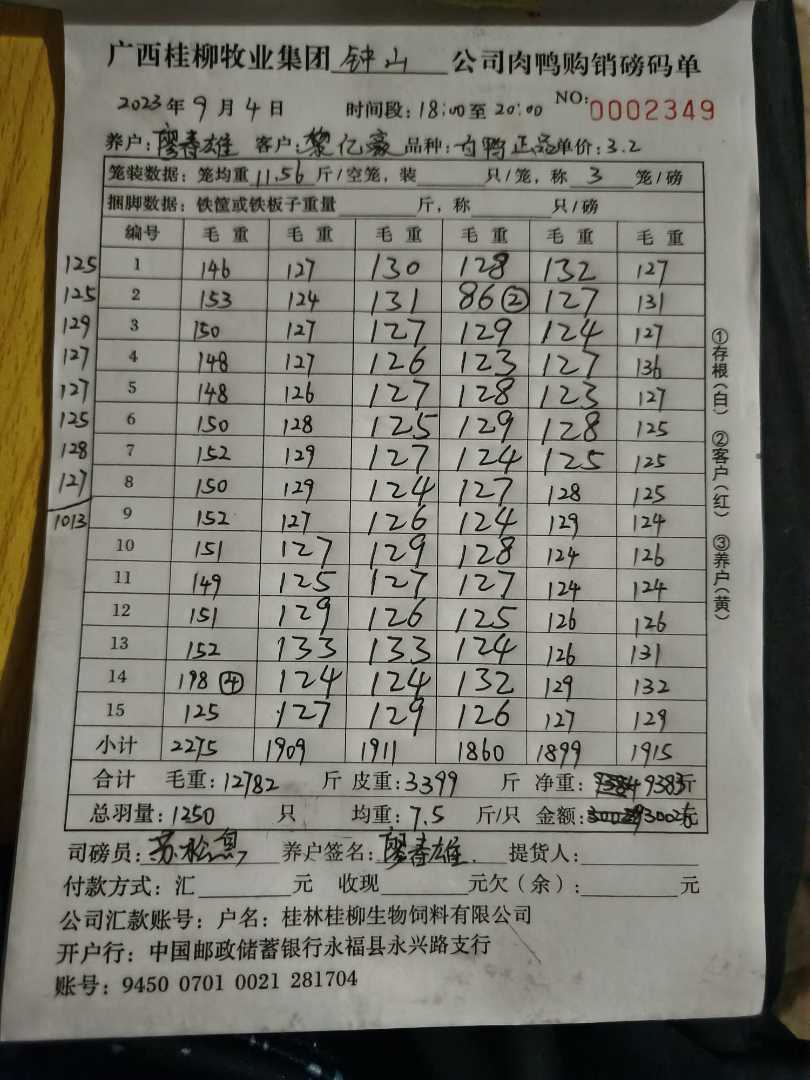 广西桂柳牧业集团钟山公司肉鸭购销磅码单
2023年9月4日 时间段:18:00至20:00 NO:0002349
养户:廖春雄 客户:黎亿豪 品种:白鸭正品 单价:3.2
笼装数据:笼均重11.56斤/空笼,装 只/笼,称 3 笼/磅
捆脚数据:铁筐或铁板子重量 斤,称 只/磅
编号 毛重 毛重 毛重 毛重 毛重 毛重
125 1 146 127 130 128 132 127
125 2 153 124 131 86② 127 131
129 3 150 127 127 129 124 127
127 4 148 127 126 123 127 136
127 5 148 126 127 128 123 127
125 6 150 128 125 129 128 125
128 7 152 129 127 124 125 125
127 8 150 129 124 127 128 125
1013 9 152 127 126 124 129 124
10 151 127 129 128 124 126
11 149 125 127 127 124 124
12 151 129 126 125 126 126
13 152 133 133 124 126 131
14 198④ 124 124 132 129 132
15 125 127 129 126 127 129
小计 2275 1909 1911 1860 1899 1915
合计 毛重:12782 斤 皮重:3399 斤 净重:9383斤
总羽量:1250 只 均重:7.5 斤/只 金额:
司磅员: 养户签名:廖春雄 提货人:
付款方式:汇 元 收现 元欠(余): 元
公司汇款账号:户名:桂林桂柳生物饲料有限公司
开户行:中国邮政储蓄银行永福县永兴路支行
账号:9450 0701 0021 281704
①存根(白) ②客户(红) ③养户(黄)